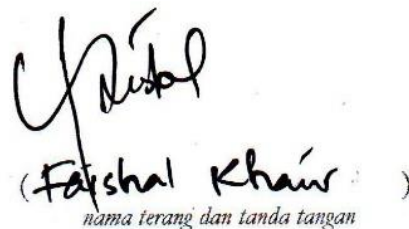 (Faishal Khair)
nama terang dan tanda tangan